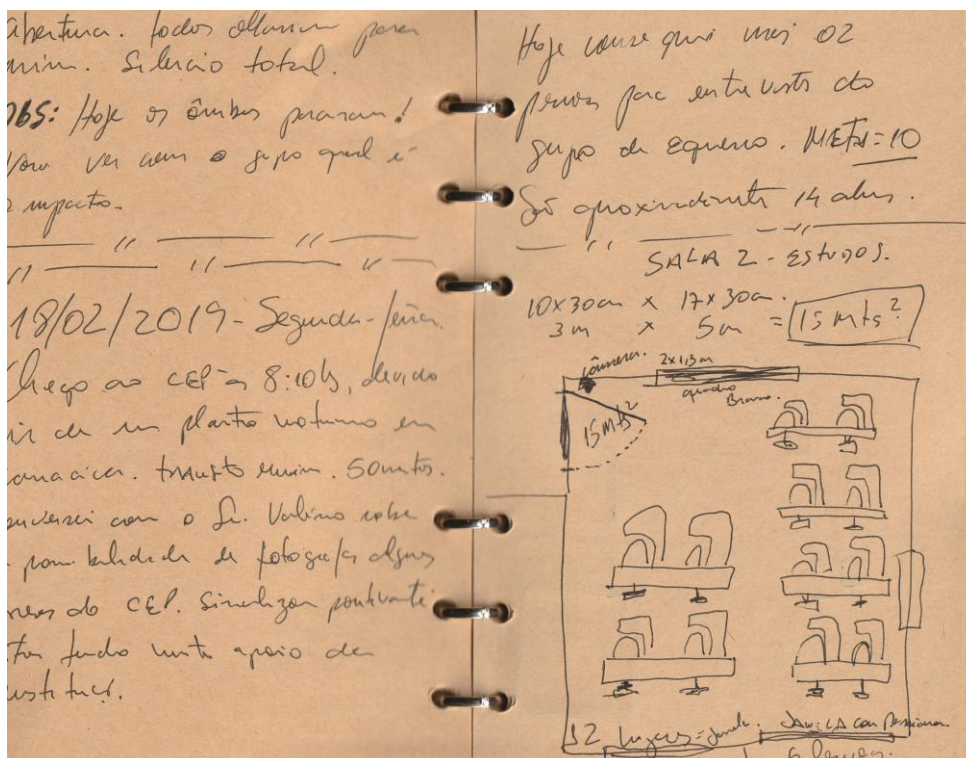 abertura. todos olharam para
mim. Silêncio total.
OBS: Hoje os ônibus pararam!
Vou ver com o grupo qual é
o impacto.
18/02/2019 - Segunda-feira.
Chego ao CEP às 8:10hs, devido
vir de um plantão noturno em
Cariacica. trânsito ruim. 50 minutos.
conversei com o Sr. sobre
a possibilidade de fotografar algumas
áreas do CEP. Sinalizou
tendo muito apoio da
Hoje consegui mais 02
para entrevista do
grupo de . META=10
São aproximadamente 14 alunos.
SALA 2 - ESTUDOS.
10x30cm x 17x30cm.
3m x 5m = 15 mts²
câmera. 2x1,3m
quadro
Branco.
15 mts²
12 lugares = Janela. JANELA com Persiana.